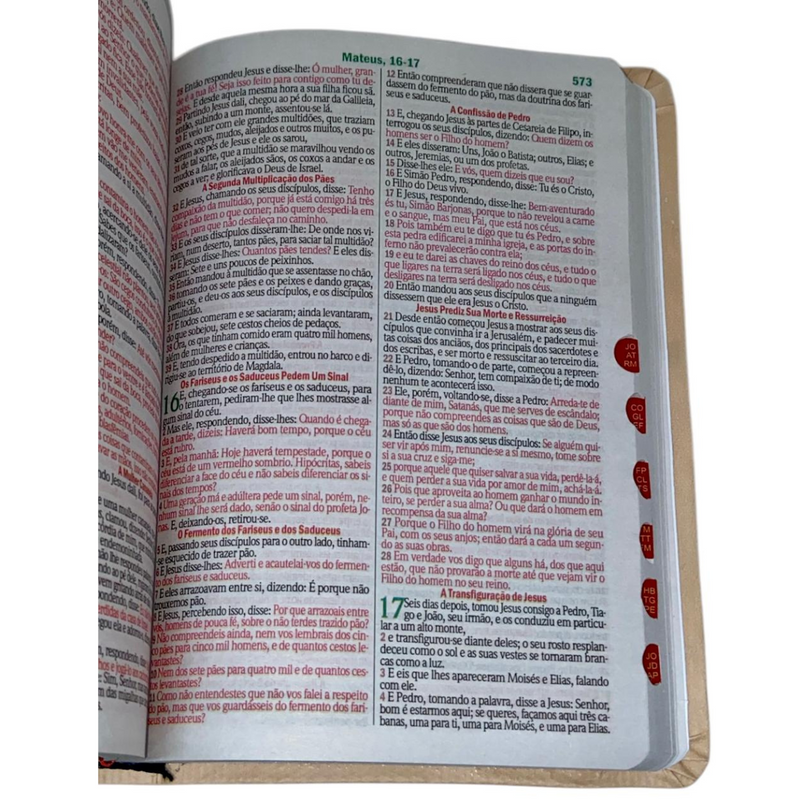 Mateus, 16-17
573
28 Então respondeu Jesus e disse-lhe: Ó mulher, gran-
de é a tua fé! Seja isso feito para contigo como tu de-
sejas. E desde aquela mesma hora a sua filha ficou sã.
29 Partindo Jesus dali, chegou ao pé do mar da Galileia,
então, subindo a um monte, assentou-se lá.
30 E veio ter com ele grandes multidões, que traziam
coxos, cegos, mudos, aleijados e outros muitos, e os pu-
seram aos pés de Jesus e ele os sarou,
31 de tal sorte, que a multidão se maravilhou vendo os
mudos a falar, os aleijados sãos, os coxos a andar e os
cegos a ver; e glorificava o Deus de Israel.
A Segunda Multiplicação dos Pães
32 E Jesus, chamando os seus discípulos, disse: Tenho
compaixão da multidão, porque já está comigo há três
dias e não tem o que comer; não quero despedi-la em
jejum, para que não desfaleça no caminho.
33 E os seus discípulos disseram-lhe: De onde nos vi-
riam, num deserto, tantos pães, para saciar tal multidão?
34 E Jesus disse-lhes: Quantos pães tendes? E eles dis-
seram: Sete e uns poucos de peixinhos.
35 Então mandou à multidão que se assentasse no chão,
36 tomando os sete pães e os peixes e dando graças,
partiu-os, e deu-os aos seus discípulos, e os discípulos
à multidão.
37 E todos comeram e se saciaram; ainda levantaram,
do que sobejou, sete cestos cheios de pedaços.
38 Ora, os que tinham comido eram quatro mil homens,
além de mulheres e crianças.
39 E, tendo despedido a multidão, entrou no barco e di-
rigiu-se ao território de Magdala.
Os Fariseus e os Saduceus Pedem Um Sinal
16 E, chegando-se os fariseus e os saduceus, para
o tentarem, pediram-lhe que lhes mostrasse al-
gum sinal do céu.
2 Mas ele, respondendo, disse-lhes: Quando é chega-
da a tarde, dizeis: Haverá bom tempo, porque o céu
está rubro.
3 E, pela manhã: Hoje haverá tempestade, porque o
céu está de um vermelho sombrio. Hipócritas, sabeis
diferenciar a face do céu e não sabeis diferenciar os si-
nais dos tempos?
4 Uma geração má e adúltera pede um sinal, porém, ne-
nhum sinal lhe será dado, senão o sinal do profeta Jo-
nas. E, deixando-os, retirou-se.
O Fermento dos Fariseus e dos Saduceus
5 E, passando seus discípulos para o outro lado, tinham-
se esquecido de trazer pão.
6 E Jesus disse-lhes: Adverti e acautelai-vos do fermen-
to dos fariseus e saduceus.
7 E eles arrazoavam entre si, dizendo: É porque não
trouxemos pão.
8 E Jesus, percebendo isso, disse: Por que arrazoais entre
vós, homens de pouca fé, sobre o não terdes trazido pão?
9 Não compreendeis ainda, nem vos lembrais dos cin-
co pães para cinco mil homens, e de quantos cestos le-
vantastes?
10 Nem dos sete pães para quatro mil e de quantos ces-
tos levantastes?
11 Como não entendestes que não vos falei a respeito
do pão, mas que vos guardásseis do fermento dos fari-
seus e saduceus?
12 Então compreenderam que não dissera que se guar-
dassem do fermento do pão, mas da doutrina dos fari-
seus e saduceus.
A Confissão de Pedro
13 E, chegando Jesus às partes de Cesareia de Filipo, in-
terrogou os seus discípulos, dizendo: Quem dizem os
homens ser o Filho do homem?
14 E eles disseram: Uns, João o Batista; outros, Elias; e
outros, Jeremias, ou um dos profetas.
15 Disse-lhes ele: E vós, quem dizeis que eu sou?
16 E Simão Pedro, respondendo, disse: Tu és o Cristo,
o Filho do Deus vivo.
17 E Jesus, respondendo, disse-lhe: Bem-aventurado
és tu, Simão Barjonas, porque to não revelou a carne
e o sangue, mas meu Pai, que está nos céus.
18 Pois também eu te digo que tu és Pedro, e sobre
esta pedra edificarei a minha igreja, e as portas do in-
ferno não prevalecerão contra ela;
19 e eu te darei as chaves do reino dos céus, e tudo o
que ligares na terra será ligado nos céus, e tudo o que
desligares na terra será desligado nos céus.
20 Então mandou aos seus discípulos que a ninguém
dissessem que ele era Jesus o Cristo.
Jesus Prediz Sua Morte e Ressurreição
21 Desde então começou Jesus a mostrar aos seus dis-
cípulos que convinha ir a Jerusalém, e padecer mui-
tas coisas dos anciãos, dos principais dos sacerdotes e
dos escribas, e ser morto e ressuscitar ao terceiro dia.
22 E Pedro, tomando-o de parte, começou a repreen-
dê-lo, dizendo: Senhor, tem compaixão de ti; de modo
nenhum te acontecerá isso.
23 Ele, porém, voltando-se, disse a Pedro: Arreda-te de
diante de mim, Satanás, que me serves de escândalo;
porque não compreendes as coisas que são de Deus,
mas só as que são dos homens.
24 Então disse Jesus aos seus discípulos: Se alguém qui-
ser vir após mim, renuncie-se a si mesmo, tome sobre
si a sua cruz e siga-me;
25 porque aquele que quiser salvar a sua vida, perdê-la-á,
e quem perder a sua vida por amor de mim, achá-la-á.
26 Pois que aproveita ao homem ganhar o mundo in-
teiro, se perder a sua alma? Ou que dará o homem em
recompensa da sua alma?
27 Porque o Filho do homem virá na glória de seu
Pai, com os seus anjos; então dará a cada um segun-
do as suas obras.
28 Em verdade vos digo que alguns há, dos que aqui
estão, que não provarão a morte até que vejam vir o
Filho do homem no seu reino.
A Transfiguração de Jesus
17 Seis dias depois, tomou Jesus consigo a Pedro, Tia-
go e João, seu irmão, e os conduziu em particu-
lar a um alto monte,
2 e transfigurou-se diante deles; o seu rosto resplan-
deceu como o sol e as suas vestes se tornaram bran-
cas como a luz.
3 E eis que lhes apareceram Moisés e Elias, falando
com ele.
4 E Pedro, tomando a palavra, disse a Jesus: Senhor,
bom é estarmos aqui; se queres, façamos aqui três ca-
banas, uma para ti, uma para Moisés, e uma para Elias.
JO
AT
RM
CO
GL
EF
FP
CL
TS
TT
HB
TG
PE
JO
JD
AP